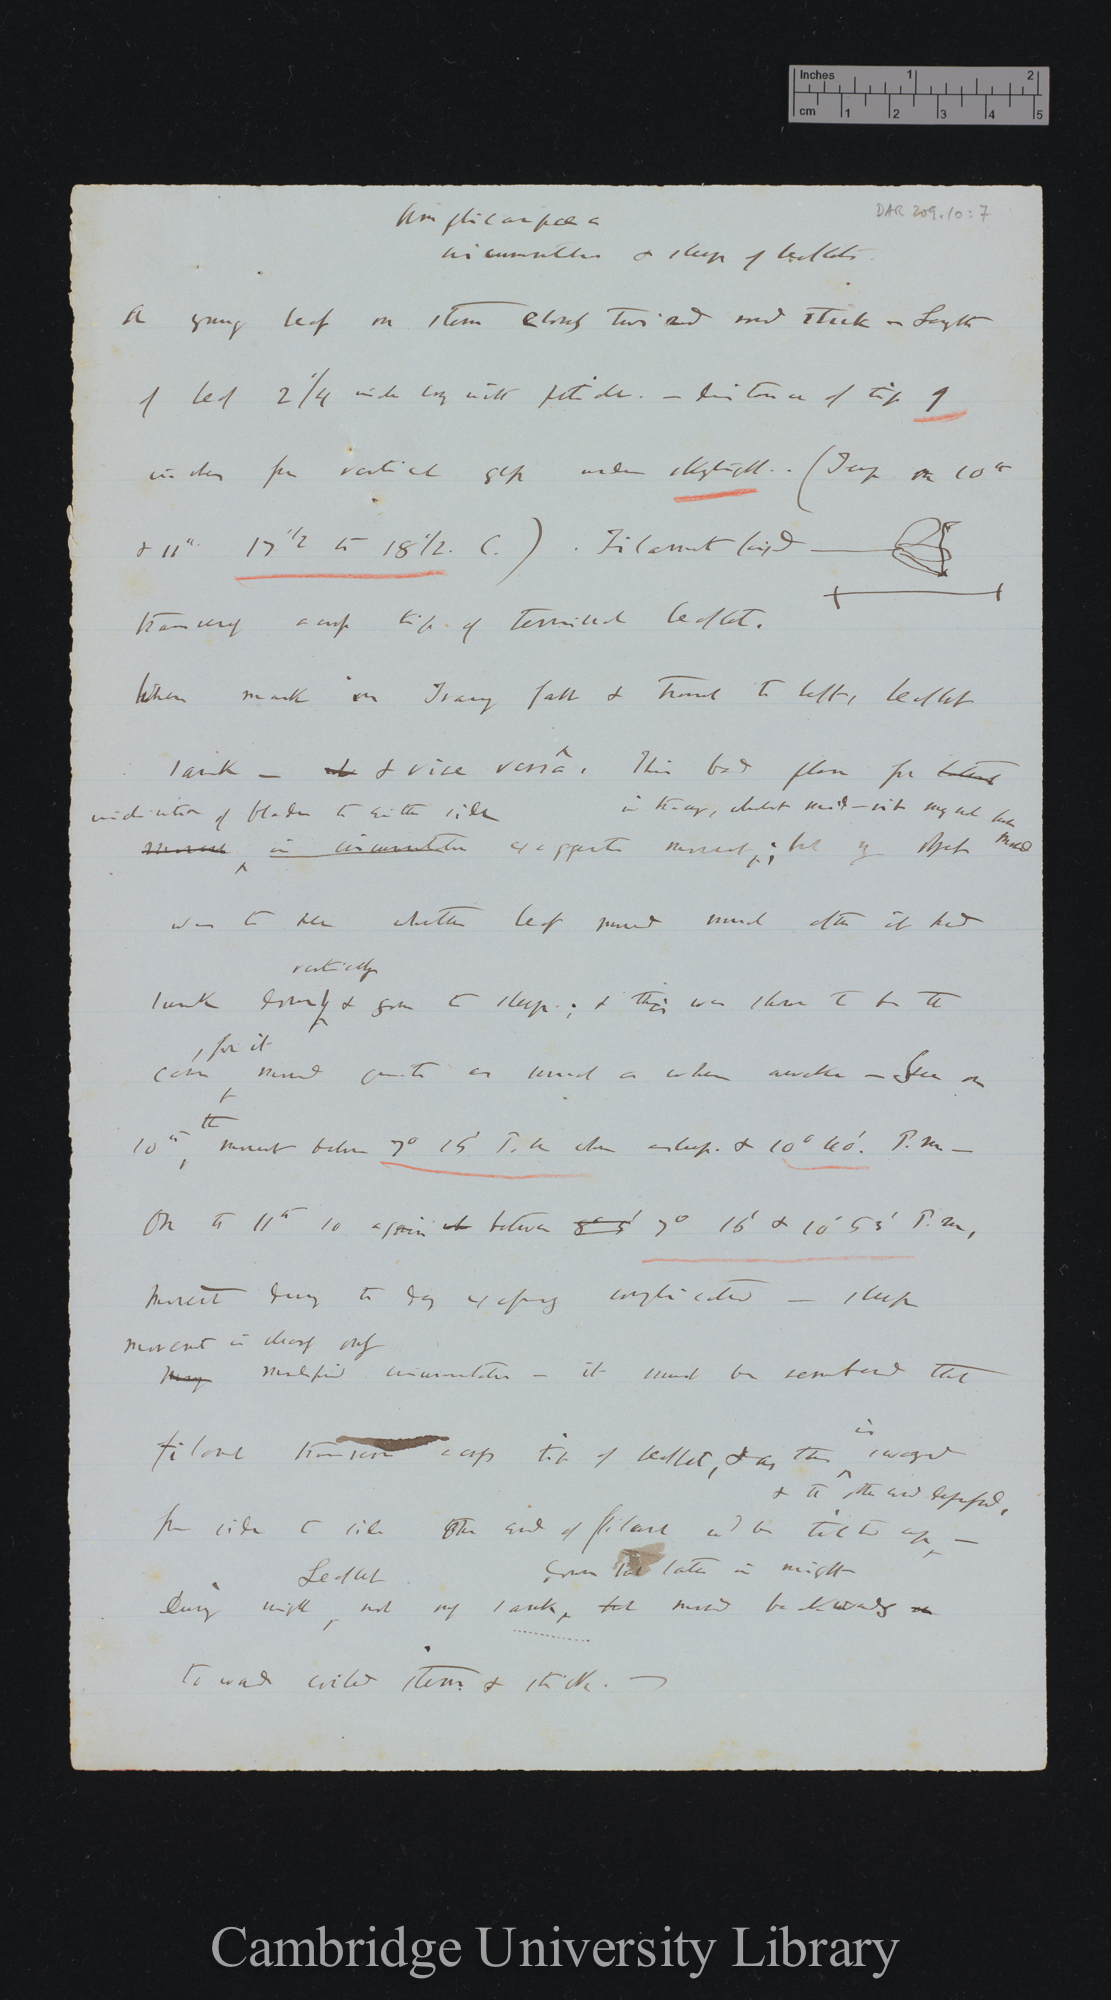 Inches 1 2
cm 1 2 3 4 5
DAR 209.10:7
Amphicarpaea
circumnutation & sleep of leaflets.
A young leaf on stem closely twisted round stick — Length
of leaf 2 1/4 inches long with petiole. — Distance of tip 9
inches from vertical glass under skylight. (Temp on 10th
& 11th 17 1/2 to 18 1/2. C.) . Filament fixed
transversely across tip of terminal leaflet.
When mark on Tracing falls & travels to left, leaflet
sank — & vice versâ. This bad plan for lateral
inclination of blades to either side
in circumnutation exaggerates movement; but my object
was to see whether leaf moved much after it had
vertically
sunk down & gone to sleep.; & this was shown to be the
, for it
case moved quite as much as when awake — See on
the
10th, movement between 7° 15' P.m when asleep. & 10° 40'. P.m —
On the 11th so again between 8° 5' 7° 15' & 10° 55' P.m,
Movement during the day — sleep
movement is clearly only
may modified circumnutation — it must be remembered that
is
filament transverse across tip of leaflet, & as this swayed
& the other end depressed,
from side to side the end of filament wd be tilted up, —
Leaflet later in night
During night, not only sank, but moved backwards
toward coiled stem & stick. —
Cambridge University Library